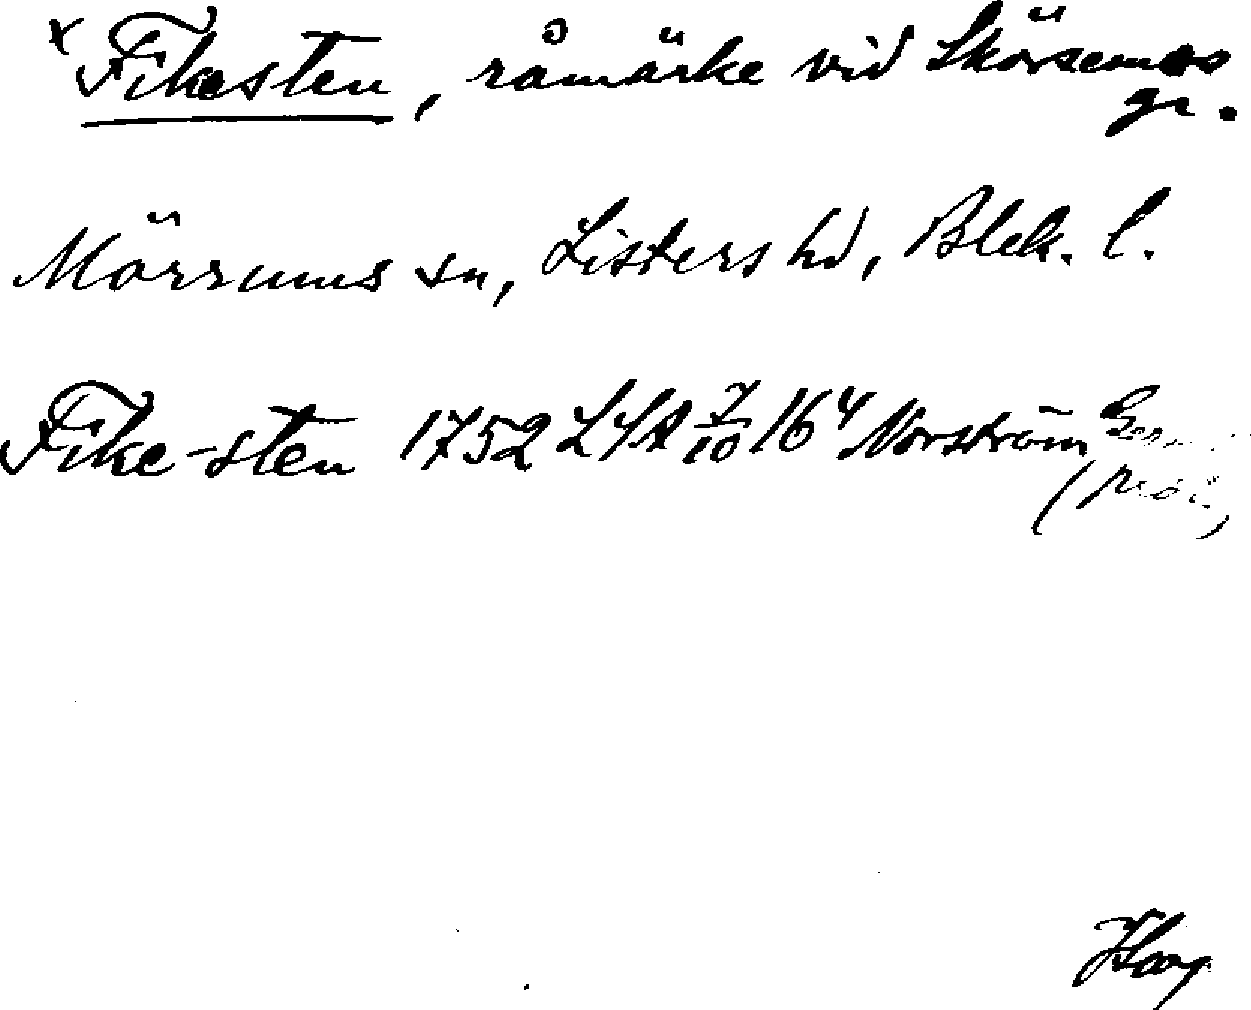 x Fikesten, råmärke vid Skörsemos
gr.
Mörrums sn, Listers hd, Blek. l.
Fike-sten 1752 LSA 7/10 16⁴ Norström